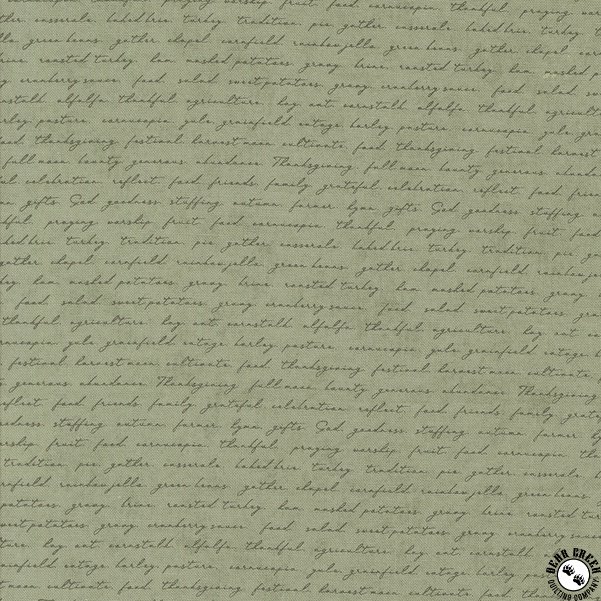 cornucopia, thankful, praying worship, fruit, food, cornucopia, thankful, praying
gather, casserole, baked brie, turkey, tradition, pie, gather, casserole, baked brie, turkey,
green beans, gather, chapel, cornfield, rainbow jello, green beans, gather, chapel,
brine, roasted turkey, ham, mashed potatoes, gravy, brine, roasted turkey, ham, mashed
cranberry sauce, food, salad, sweet potatoes, gravy, cranberry sauce, food, salad,
cornstalk, alfalfa, thankful, agriculture, hay, oat, cornstalk, alfalfa, thankful,
barley, pasture, cornucopia, yule, grainfield, cottage, barley, pasture, cornucopia, yule,
food, thanksgiving, festival, harvest moon, cultivate, food, thanksgiving, festival, harvest
full moon, bounty, generous, abundance, Thanksgiving, full moon, bounty, generous,
celebration, reflect, food, friends, family, grateful, celebration, reflect, food,
gifts, God, goodness, stuffing, autumn, farmer, hymn, gifts, God, goodness, stuffing
praying, worship, fruit, food, cornucopia, thankful, praying, worship, fruit,
baked brie, turkey, tradition, pie, gather, casserole, baked brie, turkey, tradition, pie,
gather, chapel, cornfield, rainbow jello, green beans, gather, chapel, cornfield,
ham, mashed potatoes, gravy, brine, roasted turkey, ham, mashed potatoes, gravy,
food, salad, sweet potatoes, gravy, cranberry sauce, food, salad, sweet potatoes,
thankful, agriculture, hay, oat, cornstalk, alfalfa, thankful, agriculture, hay, oat,
cornucopia, yule, grainfield, cottage, barley, pasture, cornucopia, yule, grainfield, cottage
festival, harvest moon, cultivate, food, thanksgiving, festival, harvest moon, cultivate,
generous, abundance, Thanksgiving, full moon, bounty, generous, abundance, Thanksgiving
reflect, food, friends, family, grateful, celebration, reflect, food, friends, family,
goodness, stuffing, autumn, farmer, hymn, gifts, God, goodness, stuffing, autumn, farmer,
worship, fruit, food, cornucopia, thankful, praying, worship, fruit, food, cornucopia,
tradition, pie, gather, casserole, baked brie, turkey, tradition, pie, gather, casserole,
cornfield, rainbow jello, green beans, gather, chapel, cornfield, rainbow jello, green beans,
potatoes, gravy, brine, roasted turkey, ham, mashed potatoes, gravy, brine, roasted
sweet potatoes, gravy, cranberry sauce, food, salad, sweet potatoes, gravy, cranberry sauce
hay, oat, cornstalk, alfalfa, thankful, agriculture, hay, oat, cornstalk,
grainfield, cottage, barley, pasture, cornucopia, yule, grainfield, cottage, barley,
moon, cultivate, food, thanksgiving, festival, harvest moon, cultivate, food,
BEAR CREEK
QUILTING COMPANY